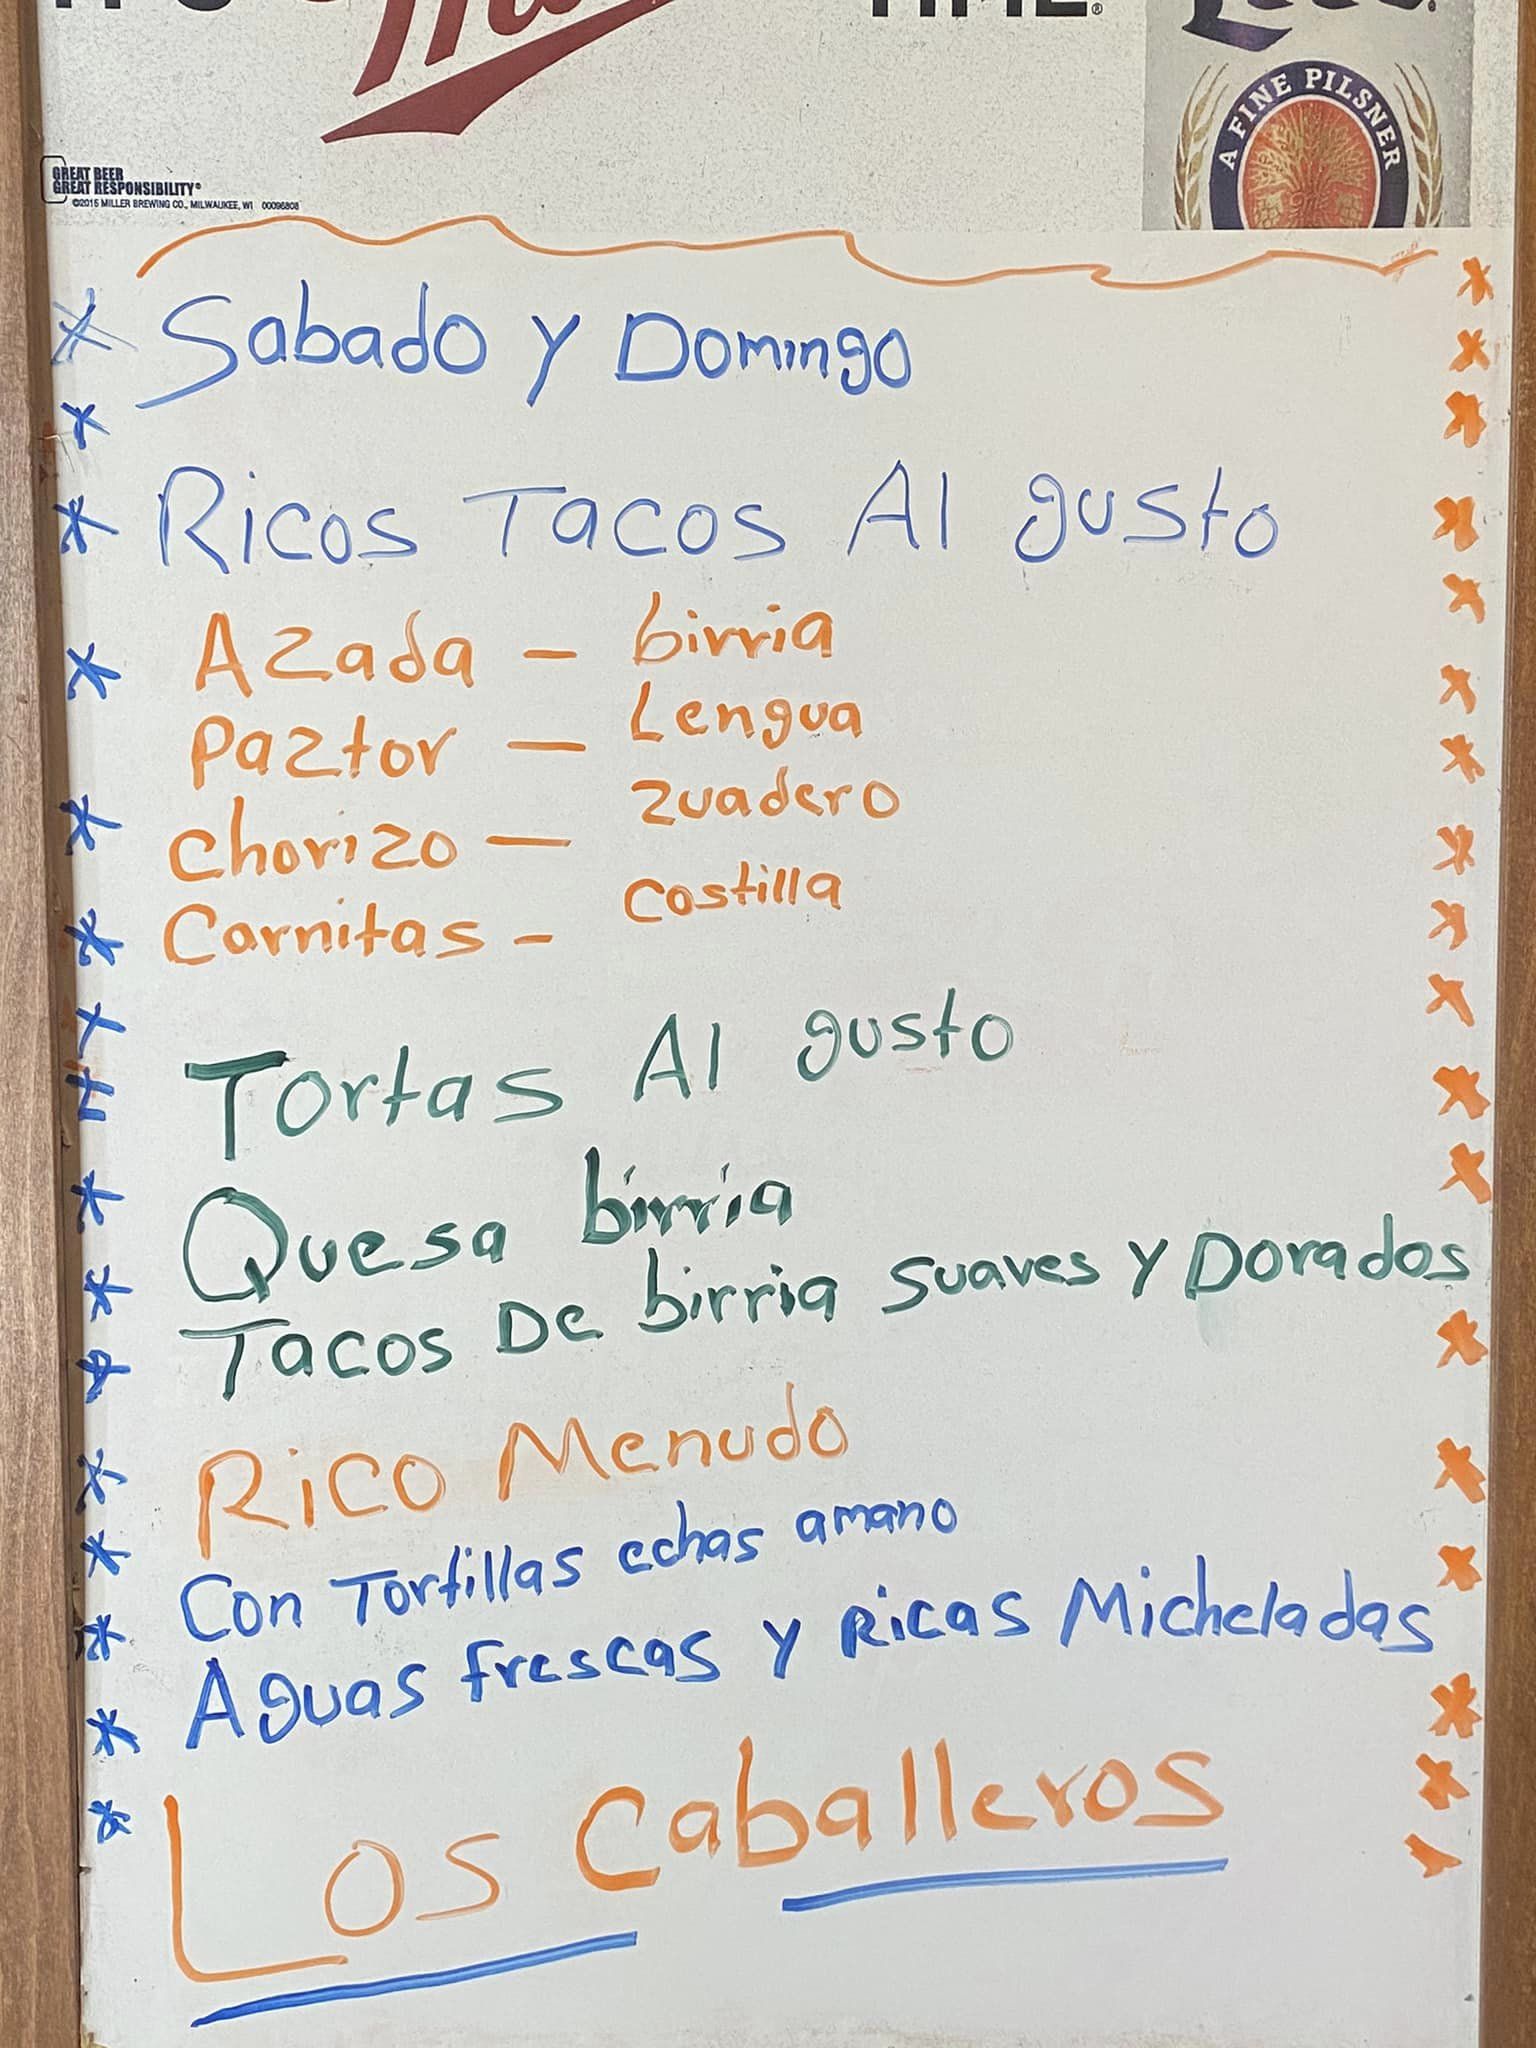 TIME.
A FINE PILSNER
GREAT BEER
GREAT RESPONSIBILITY®
©2015 MILLER BREWING CO., MILWAUKEE, WI 00096808
Sabado y Domingo
Ricos Tacos Al gusto
Azada - birria
Paztor - Lengua
Chorizo - zuadero
Carnitas - Costilla
Tortas Al gusto
Quesa birria
Tacos De birria Suaves y Dorados
Rico Menudo
Con Tortillas echas amano
Aguas frescas y Ricas Micheladas
Los Caballeros